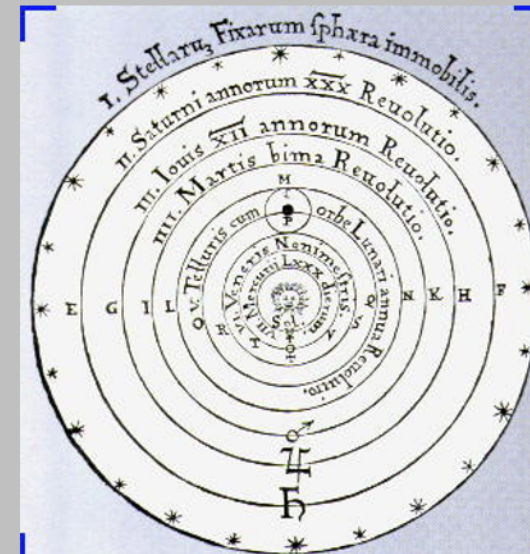 I. Stellaruʒ Fixarum ſphæra immobilis.
II. Saturni annorum XXX Reuolutio.
III. Iouis XII annorum Reuolutio.
IIII. Martis bima Reuolutio.
V. Telluris cum orbe Lunari annua Reuolutio.
VI. Veneris Nonimestris.
VII. Mercurij LXXX dierum
Sol
M
P
E G I L Q R T S N K H F
♂
♃
♄